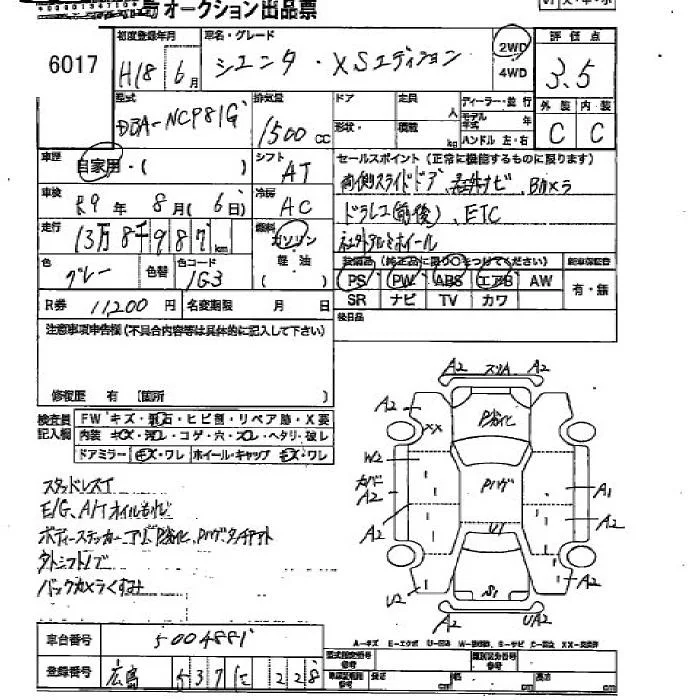 オークション出品票
6017
初度登録年月 H18年 6月
車名・グレード シエンタ・XSエディション
2WD
4WD
評価点 3.5
外装 C 内装 C
型式 DBA-NCP81G
排気量 1500 cc
ドア
形状・
定員 人
積載 kg
ディーラー・並行
モデル年式 年
ハンドル 左・右
車歴 自家用・( )
シフト AT
セールスポイント (正常に機能するものに限ります)
両側スライドドア、社外ナビ、Bカメラ
ドラレコ(前後)、ETC
社外アルミホイール
車検 R9年 8月(6日)
冷房 AC
走行 13万8千987km
燃料 ガソリン
軽油
( )
色 グレー 色替 色コード 1G3
装備品 (純正品に限り○をつけてください) 新車保証書
PS PW ABS エアB AW
SR ナビ TV カワ
有・無
R券 11200円 名変期限 月 日
後日品
注意事項申告欄(不具合内容等は具体的に記入して下さい)
修復歴 有 (箇所 )
検査員記入欄
FW キズ・飛石・ヒビ割・リペア跡・X要
内装 キズ・汚レ・コゲ・穴・スレ・ヘタリ・破レ
ドアミラー キズ・ワレ ホイール・キャップ キズ・ワレ
スタッドレスT
E/G、A/Tオイルもれ
バックカメラくすみ
A2 スリA A2
A2
XX
P劣化
W2
カバド
A2
Pハゲ
A1
A2
A2
U1
S1
A2
U2
A2
UA2
車台番号 5004881
登録番号 広島 537 に 228
型式指定番号 参考
類別区分番号 参考
長さ cm 幅 cm 高さ cm